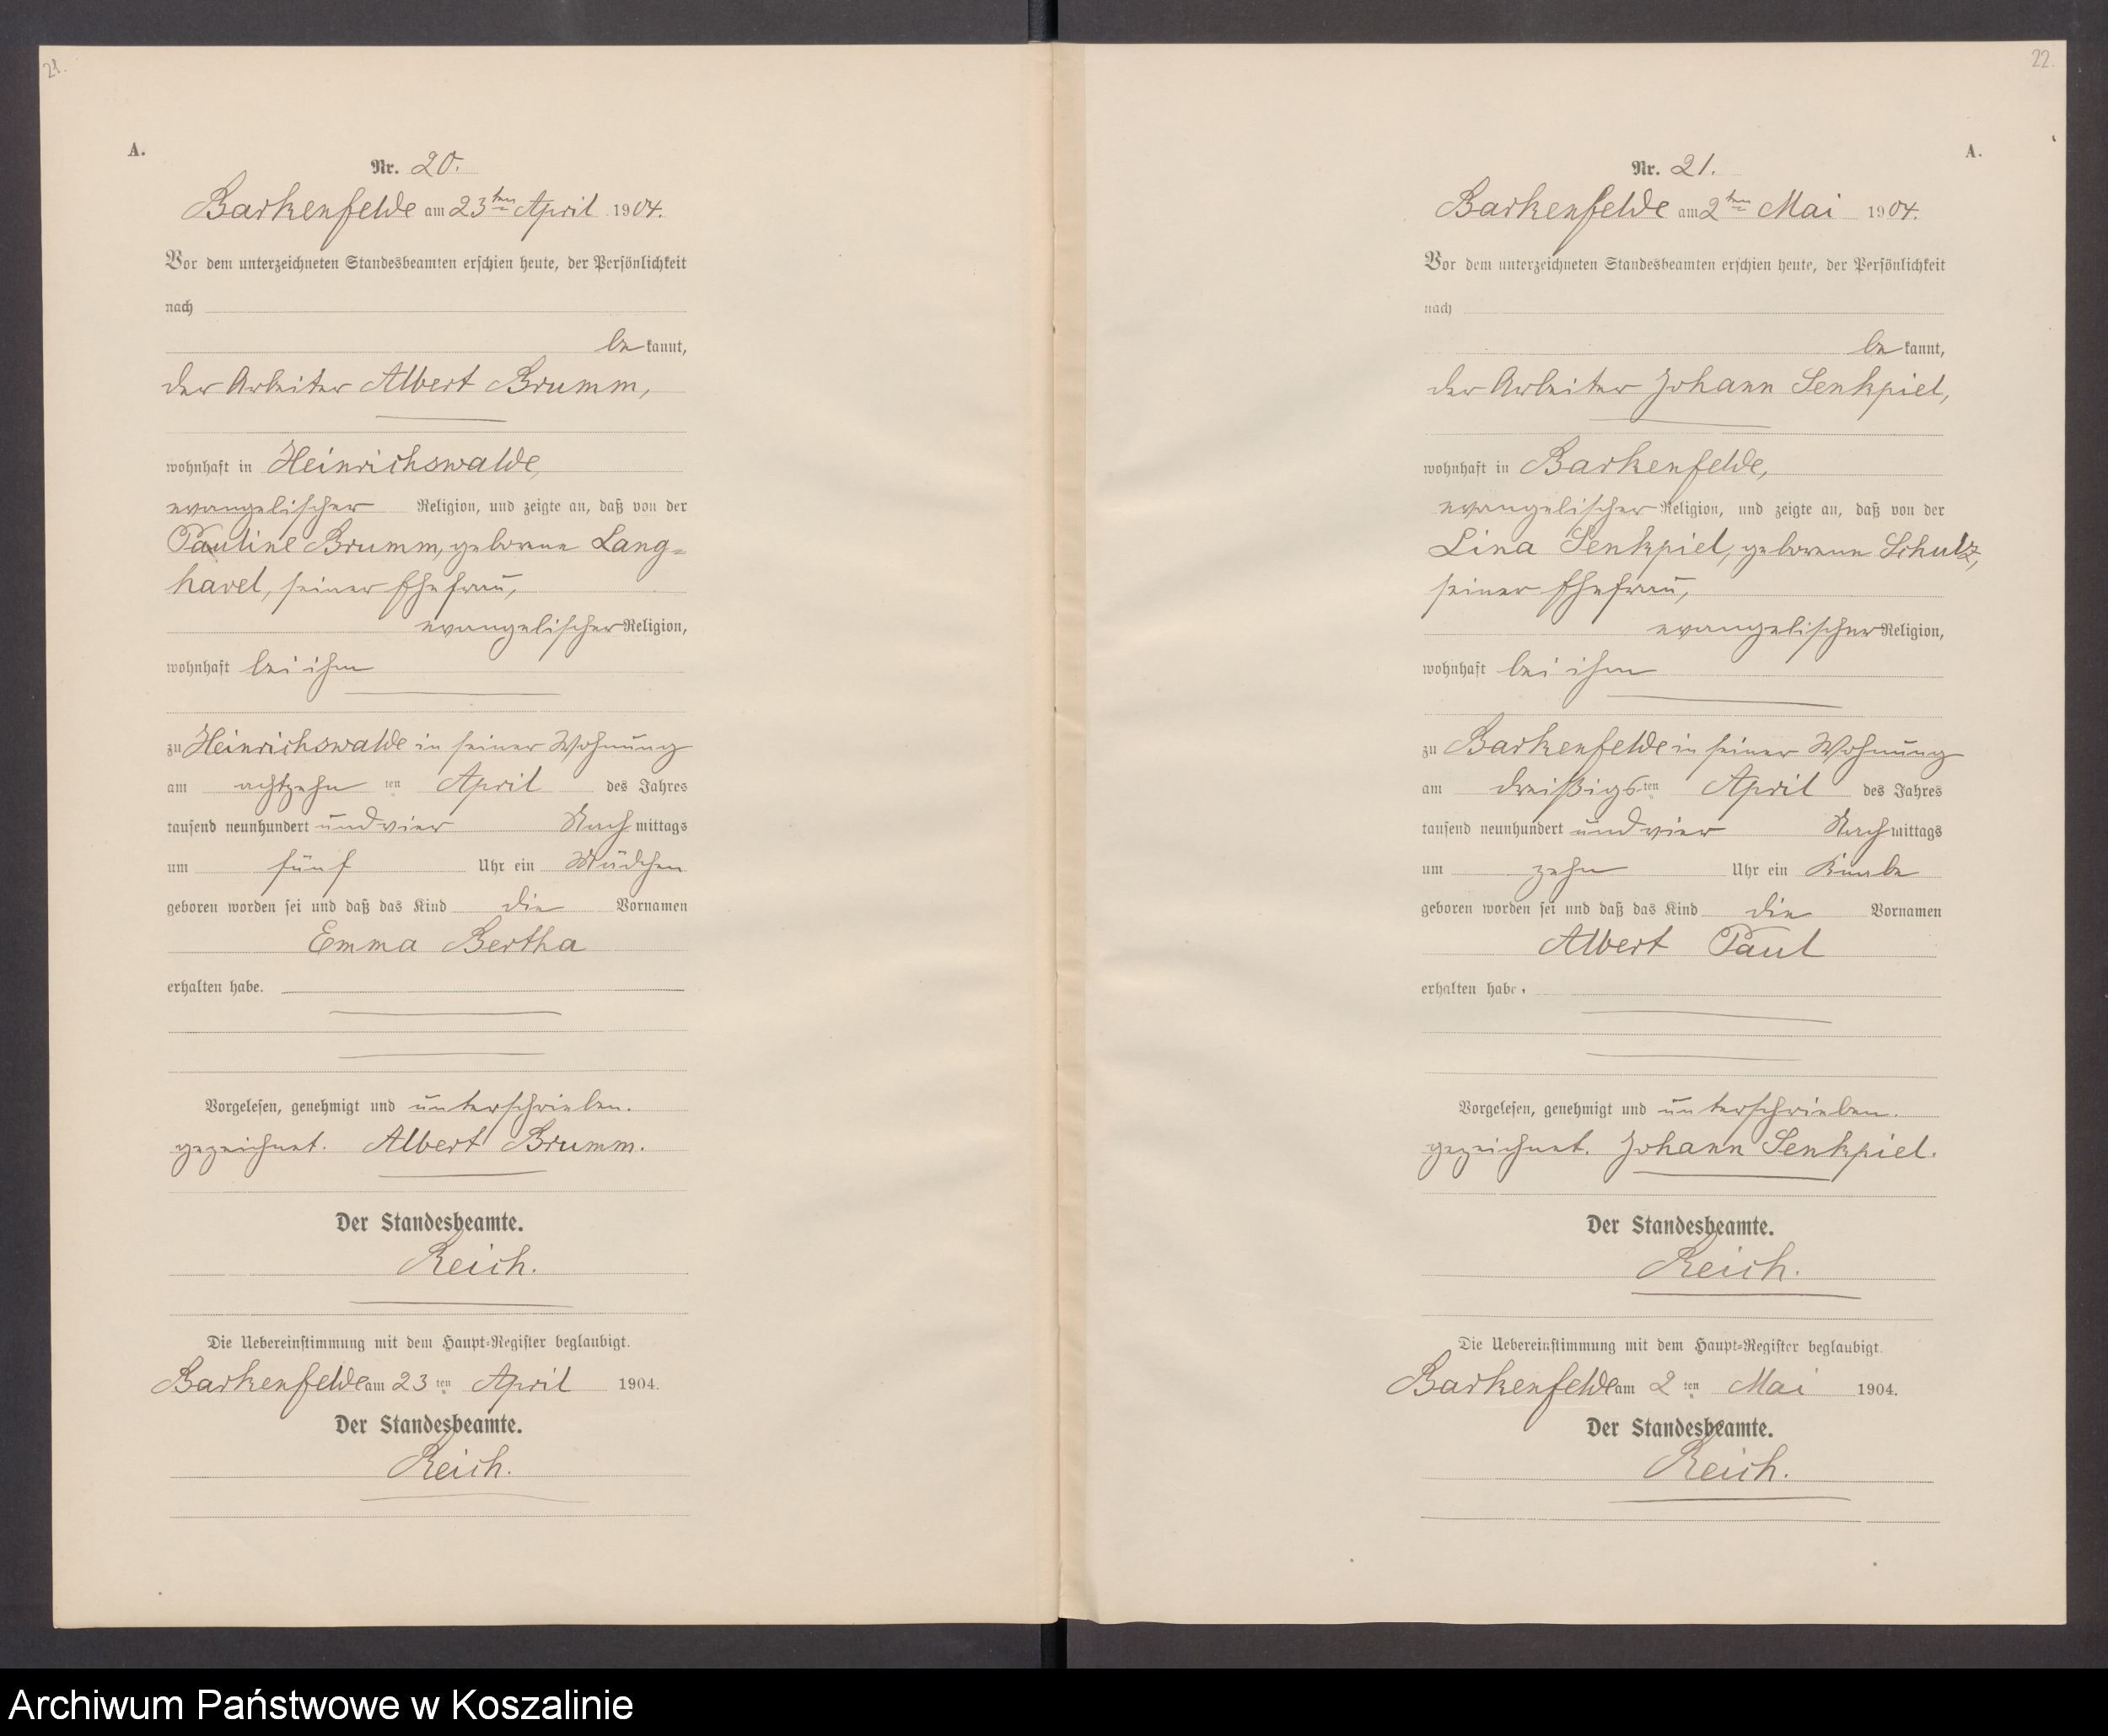 21.
A.
Nr. 20.
Barkenfelde am 23ten April 1904.
Vor dem unterzeichneten Standesbeamten erschien heute, der Persönlichkeit
nach
be kannt,
der Arbeiter Albert Brumm,
wohnhaft in Heinrichswalde,
evangelischer Religion, und zeigte an, daß von der
Pauline Brumm, geborene Lang=
havel, seiner Ehefrau,
evangelischer Religion,
wohnhaft bei ihm
zu Heinrichswalde in seiner Wohnung
am achtzehn ten April des Jahres
tausend neunhundert und vier Nach mittags
um fünf Uhr ein Mädchen
geboren worden sei und daß das Kind die Vornamen
Emma Bertha
erhalten habe.
Vorgelesen, genehmigt und unterschrieben.
gezeichnet. Albert Brumm.
Der Standesbeamte.
Reich.
Die Uebereinstimmung mit dem Haupt=Register beglaubigt.
Barkenfelde am 23 ten April 1904.
Der Standesbeamte.
Reich.
22.
A.
Nr. 21.
Barkenfelde am 2ten Mai 1904.
Vor dem unterzeichneten Standesbeamten erschien heute, der Persönlichkeit
nach
be kannt,
der Arbeiter Johann Senkpiel,
wohnhaft in Barkenfelde,
evangelischer Religion, und zeigte an, daß von der
Lina Senkpiel, geborene Schulz,
seiner Ehefrau,
evangelischer Religion,
wohnhaft bei ihm
zu Barkenfelde in seiner Wohnung
am dreißigs ten April des Jahres
tausend neunhundert und vier Nach mittags
um zehn Uhr ein Knabe
geboren worden sei und daß das Kind die Vornamen
Albert Paul
erhalten habe.
Vorgelesen, genehmigt und unterschrieben.
gezeichnet. Johann Senkpiel.
Der Standesbeamte.
Reich.
Die Uebereinstimmung mit dem Haupt=Register beglaubigt.
Barkenfelde am 2 ten Mai 1904.
Der Standesbeamte.
Reich.
Archiwum Państwowe w Koszalinie